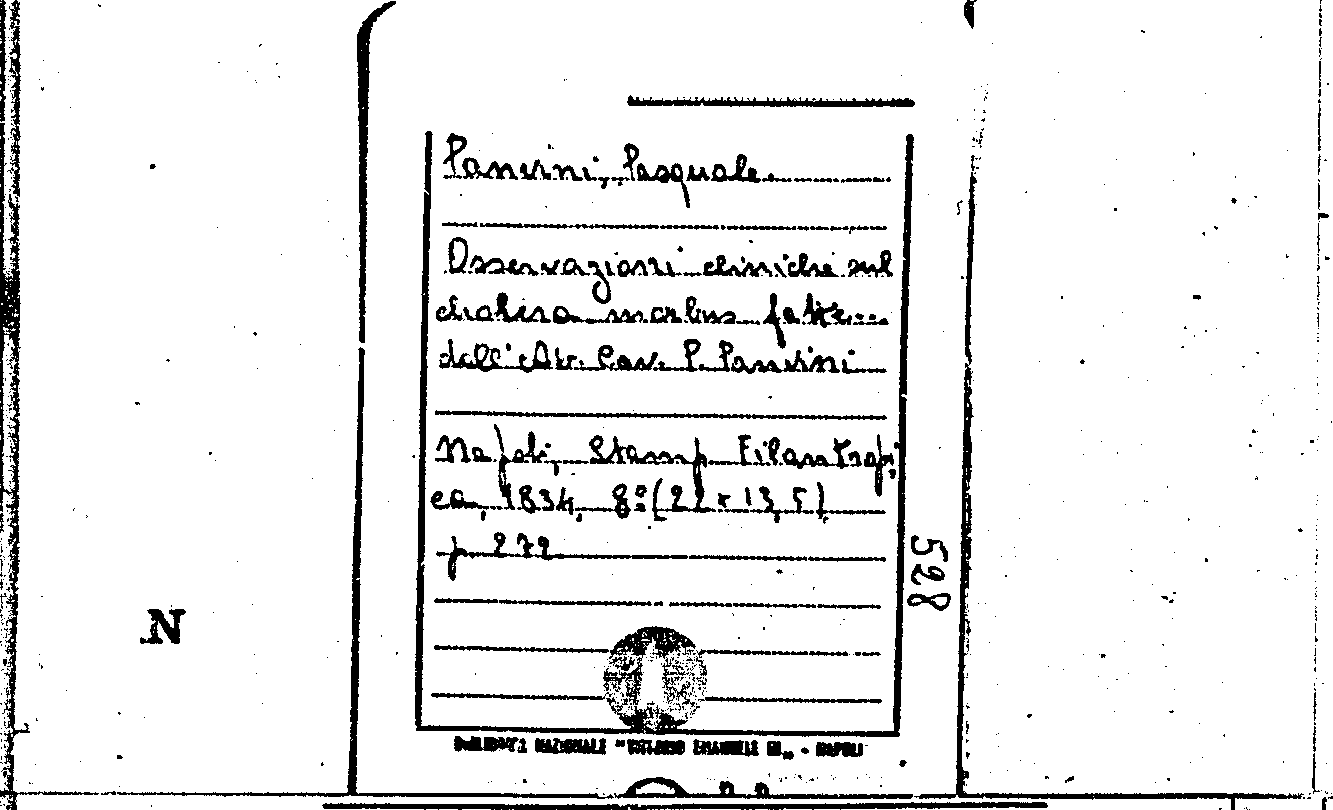 Panvini, Pasquale.
Osservazioni cliniche sul
cholera-morbus fatte...
dall' Avv. Cav. P. Panvini
Napoli, Stamp. Filantropi
ca, 1834, 8º (22 x 13,5)
p. 272
528
N
NAZIONALE "VITTORIO EMANUELE III" - NAPOLI